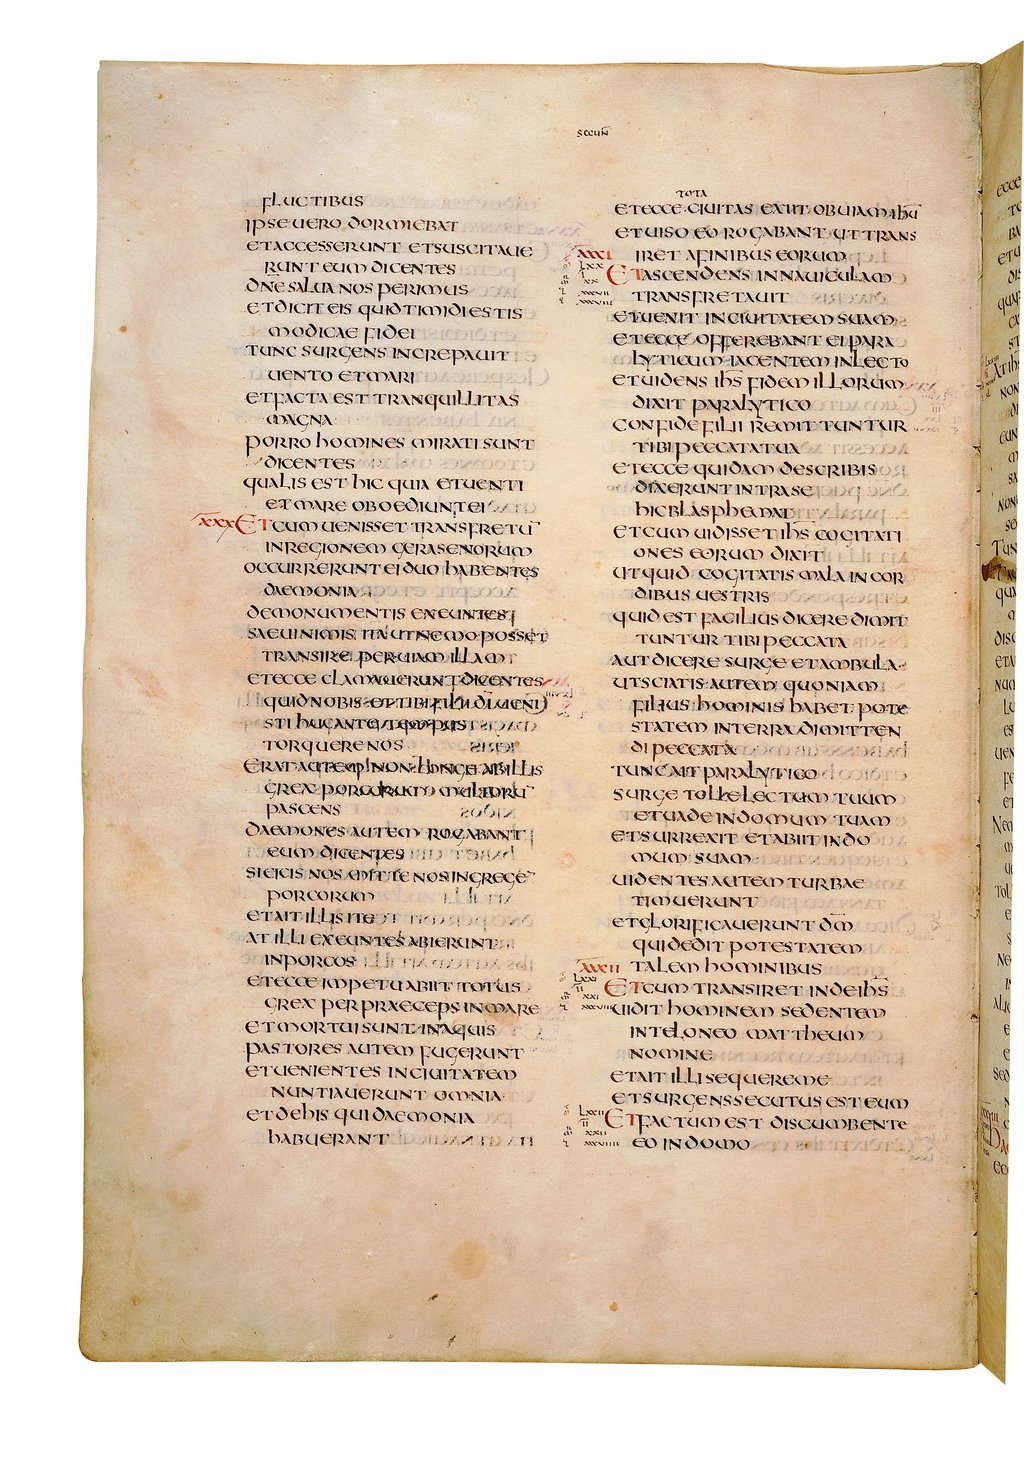 SECUN̄
FLUCTIBUS
IPSE UERO DORMIEBAT
ET ACCESSERUNT ET SUSCITAUE
RUNT EUM DICENTES
DN̄E SALUA NOS PERIMUS
ET DICIT EIS QUID TIMIDI ESTIS
MODICAE FIDEI
TUNC SURGENS INCREPAUIT
UENTO ET MARI
ET FACTA EST TRANQUILLITAS
MAGNA
PORRO HOMINES MIRATI SUNT
DICENTES
QUALIS EST HIC QUIA ET UENTI
ET MARE OBOEDIUNT EI
XXX ET CUM UENISSET TRANSFRETU̅
IN REGIONEM GERASENORUM
OCCURRERUNT EI DUO HABENTES
DAEMONIA
DE MONUMENTIS EXEUNTES
SAEUI NIMIS ITA UT NEMO POSSET
TRANSIRE PER UIAM ILLAM
ET ECCE CLAMAUERUNT DICENTES
QUID NOBIS ET TIBI FILI DI UENI
STI HUC ANTE TEMPUS
TORQUERE NOS
ERAT AUTEM NON LONGE AB ILLIS
GREX PORCORUM MULTORU̅
PASCENS
DAEMONES AUTEM ROGABANT
EUM DICENTES
SI EICIS NOS MITTE NOS IN GREGE̅
PORCORUM
ET AIT ILLIS ITE
AT ILLI EXEUNTES ABIERUNT
IN PORCOS
ET ECCE IMPETU ABIIT TOTUS
GREX PER PRAECEPS IN MARE
ET MORTUI SUNT IN AQUIS
PASTORES AUTEM FUGERUNT
ET UENIENTES IN CIUITATEM
NUNTIAUERUNT OMNIA
ET DE HIS QUI DAEMONIA
HABUERANT
TOTA
ET ECCE CIUITAS EXIIT OBUIAM IHU̅
ET UISO EO ROGABANT UT TRANS
XXXI IRET A FINIBUS EORUM
LXX
ET ASCENDENS IN NAUICULAM
TRANSFRETAUIT
ET UENIT IN CIUITATEM SUAM
ET ECCE OFFEREBANT EI PARA
LYTICUM IACENTEM IN LECTO
ET UIDENS IHS̅ FIDEM ILLORUM
DIXIT PARALYTICO
CONFIDE FILI REMITTUNTUR
TIBI PECCATA TUA
ET ECCE QUIDAM DE SCRIBIS
DIXERUNT INTRA SE
HIC BLASPHEMAT
ET CUM UIDISSET IHS̅ COGITATI
ONES EORUM DIXIT
UT QUID COGITATIS MALA IN COR
DIBUS UESTRIS
QUID EST FACILIUS DICERE DIMIT
TUNTUR TIBI PECCATA
AUT DICERE SURGE ET AMBULA
UT SCIATIS AUTEM QUONIAM
FILIUS HOMINIS HABET POTE
STATEM IN TERRA DIMITTEN
DI PECCATA
TUNC AIT PARALYTICO
SURGE TOLLE LECTUM TUUM
ET UADE IN DOMUM TUAM
ET SURREXIT ET ABIIT IN DO
MUM SUAM
UIDENTES AUTEM TURBAE
TIMUERUNT
ET GLORIFICAUERUNT DM̅
QUI DEDIT POTESTATEM
XXXII TALEM HOMINIBUS
LXXI
ET CUM TRANSIRET INDE IHS̅
UIDIT HOMINEM SEDENTEM
IN TELONEO MATTHEUM
NOMINE
ET AIT ILLI SEQUERE ME
ET SURGENS SECUTUS EST EUM
LXXII
ET FACTUM EST DISCUMBENTE
EO IN DOMO